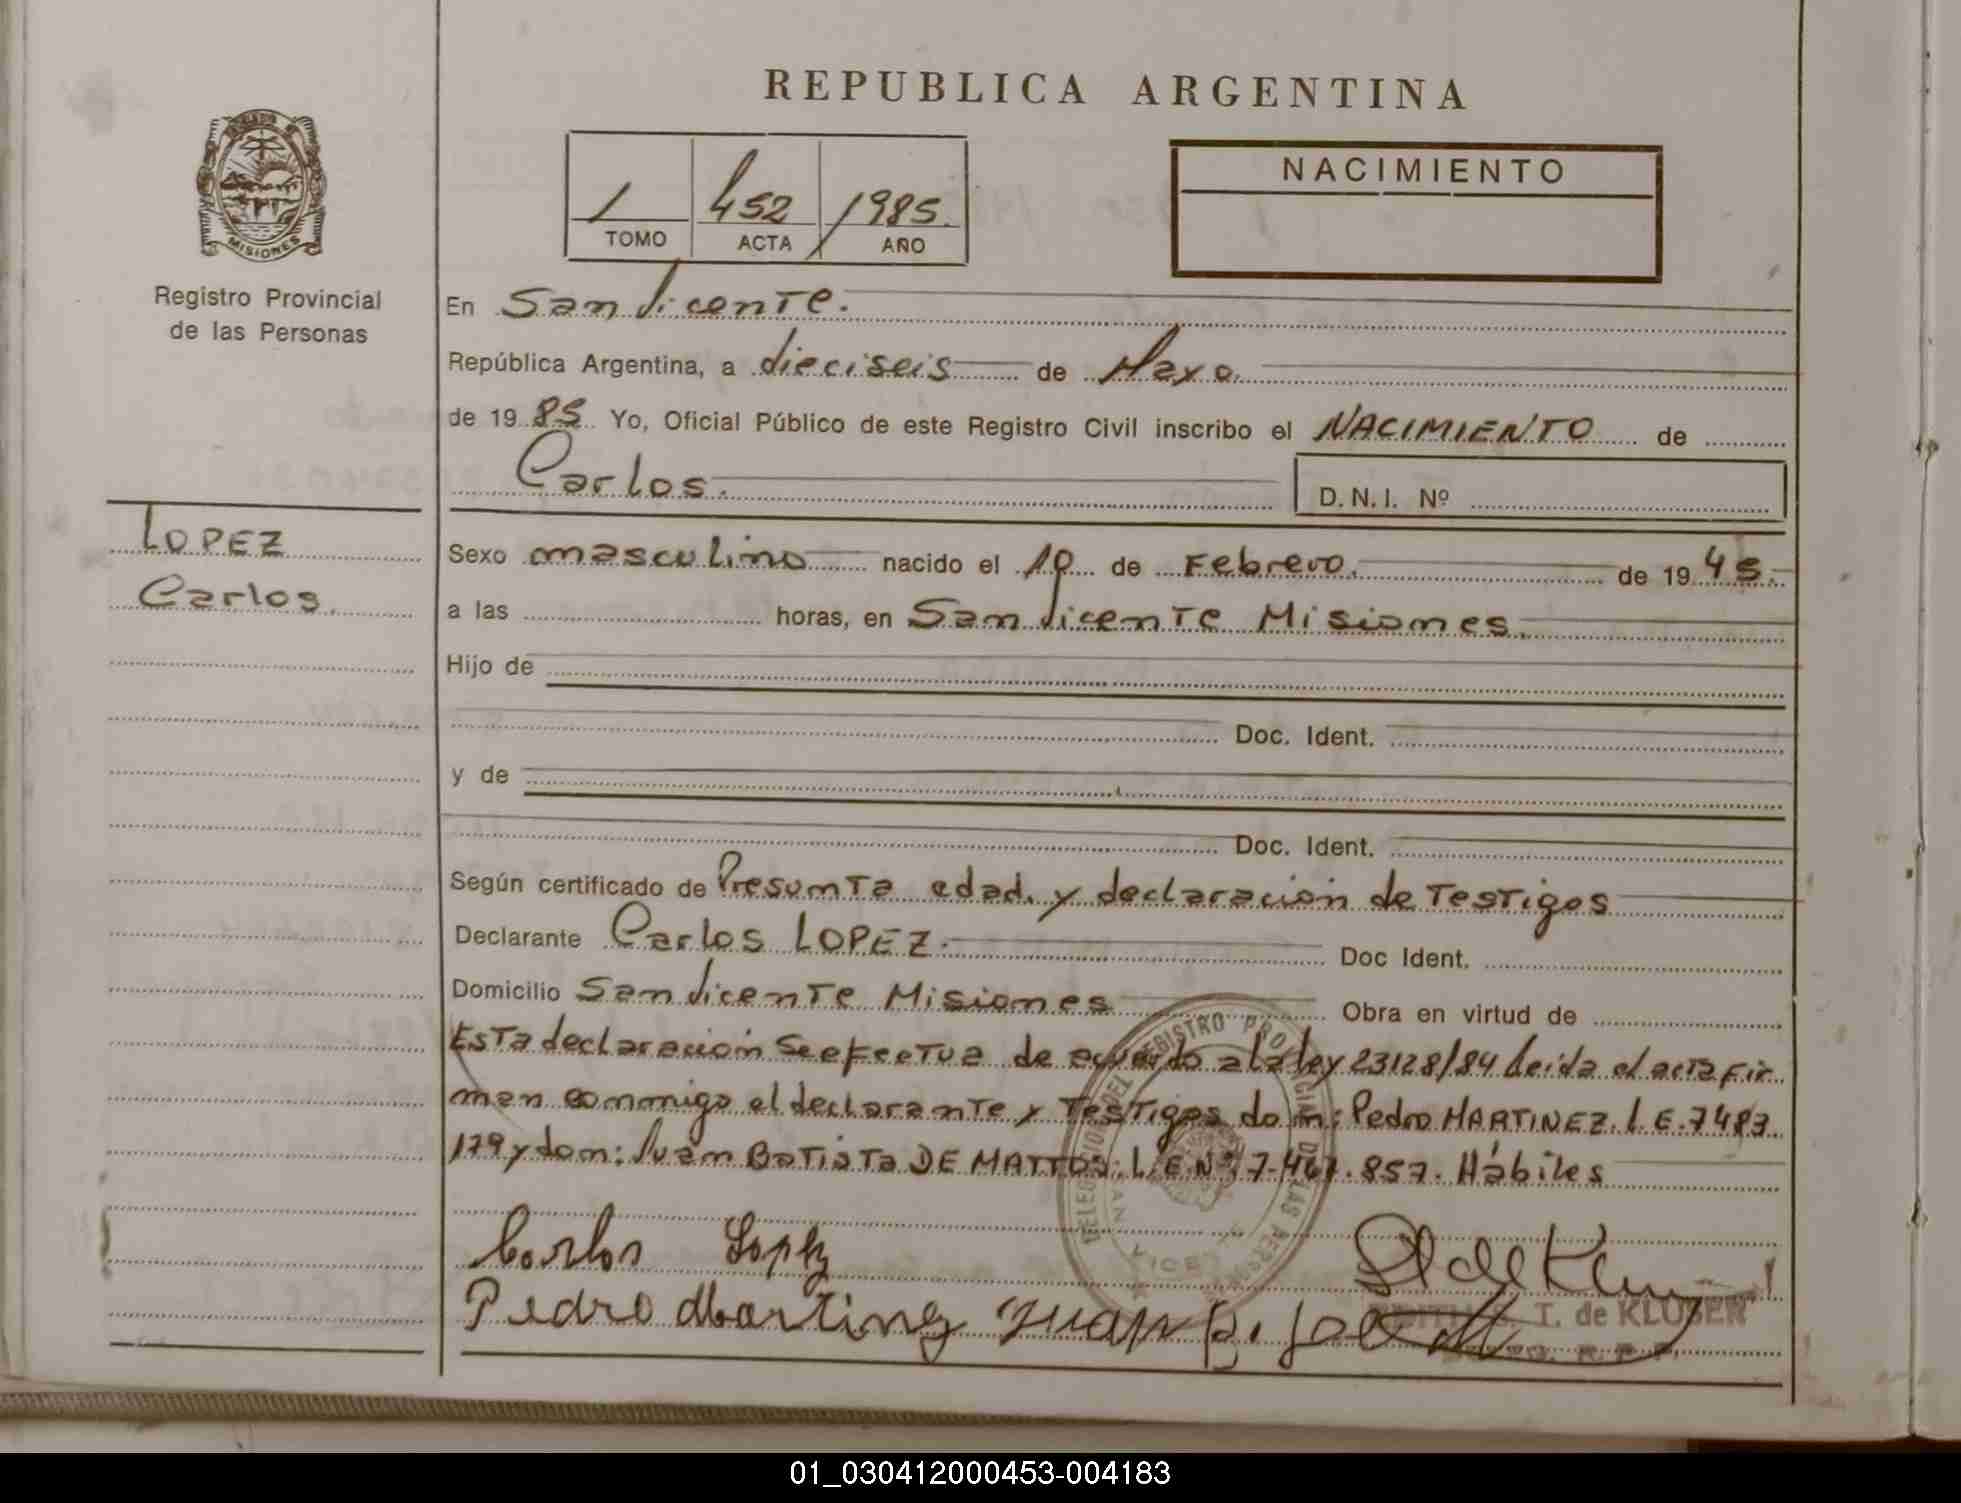 REPUBLICA ARGENTINA
MISIONES
Registro Provincial
de las Personas
1 452 1985.
TOMO ACTA AÑO
NACIMIENTO
En San Vicente.
República Argentina, a dieciseis de Mayo.
de 19 85 Yo, Oficial Público de este Registro Civil inscribo el NACIMIENTO de
Carlos.
D.N.I. Nº
LOPEZ
Carlos.
Sexo masculino nacido el 10 de Febrero. de 19 45.
a las horas, en San Vicente Misiones.
Hijo de
Doc. Ident.
y de
Doc. Ident.
Según certificado de Presunta edad. y declaración de Testigos
Declarante Carlos LOPEZ. Doc Ident.
Domicilio San Vicente Misiones Obra en virtud de
Esta declaración se efectua de acuerdo a la ley 23128/84 leida el acta fir
man conmigo el declarante y Testigos don: Pedro MARTINEZ. L.E. 7483
179 y don: Juan Batista DE MATTOS: L.E.Nº 7.467.857. Hábiles
Carlos Lopez
Pedro Martinez Juan B.
T. de KLUSER
R. P. P.
REGISTRO PROVINCIAL DE LAS PERSONAS
01_030412000453-004183